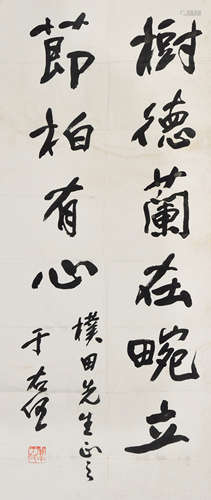 樹德蘭在畹立
節柏有心
樸田先生正之
于右任